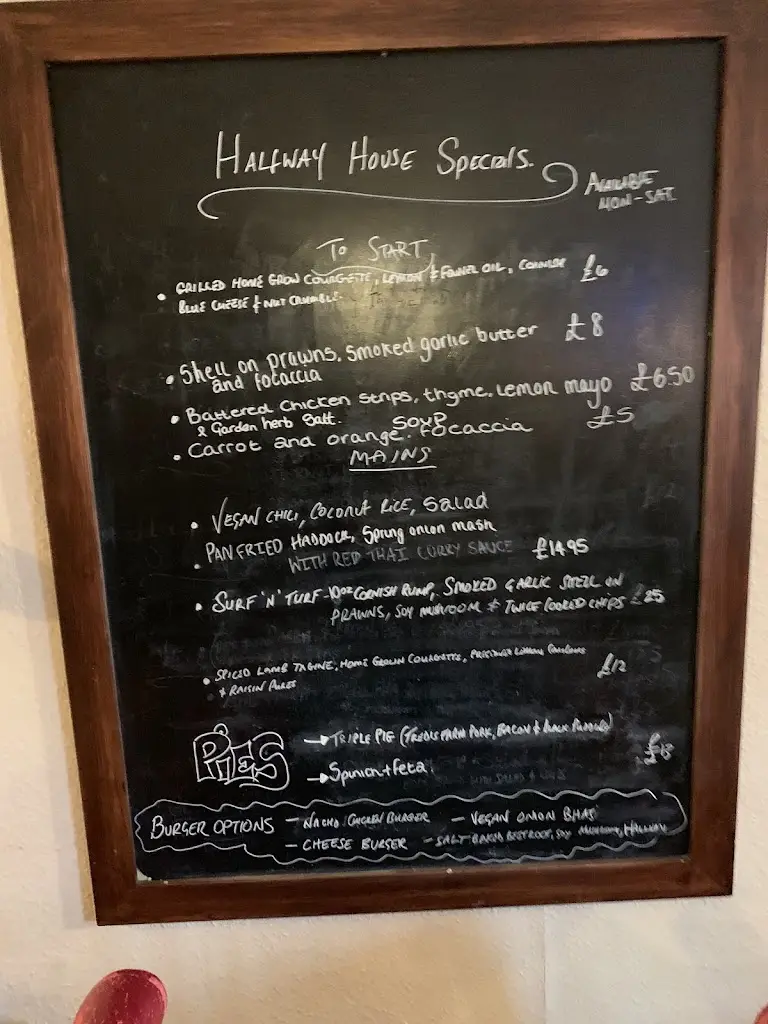 HALFWAY HOUSE SPECIALS.
AVAILABLE
MON-SAT
TO START
• GRILLED HOME GROW COURGETTE, LEMON & FENNEL OIL, CORNISH £6
BLUE CHEESE & NUT CRUMBLE.
• Shell on Prawns, Smoked garlic butter £8
and focaccia
• Battered Chicken Strips, thyme, Lemon mayo £6.50
& Garden herb Salt.
• Carrot and orange Soup. Focaccia £5
MAINS
• VEGAN CHILI, COCONUT RICE, Salad
• PAN FRIED HADDOCK, Spring onion mash
WITH RED THAI CURRY SAUCE £14.95
• SURF 'N' TURF - 10oz CORNISH RUMP, SMOKED GARLIC SHELL ON
PRAWNS, SOY MUSHROOM & TWICE COOKED CHIPS £25
• SPICED LAMB TAGINE, HOME GROWN COURGETTE, PRESERVED LEMON £12
& RAISIN
PIES
→ TRIPLE PIG (TREDIS FARM PORK, BACON & BLACK PUDDING)
→ Spinach + Feta
BURGER OPTIONS
- NACHO CHICKEN BURGER - VEGAN ONION BHAJI
- CHEESE BURGER - SALT BAKED BEETROOT, SOY MUSHROOM, HALLOUMI